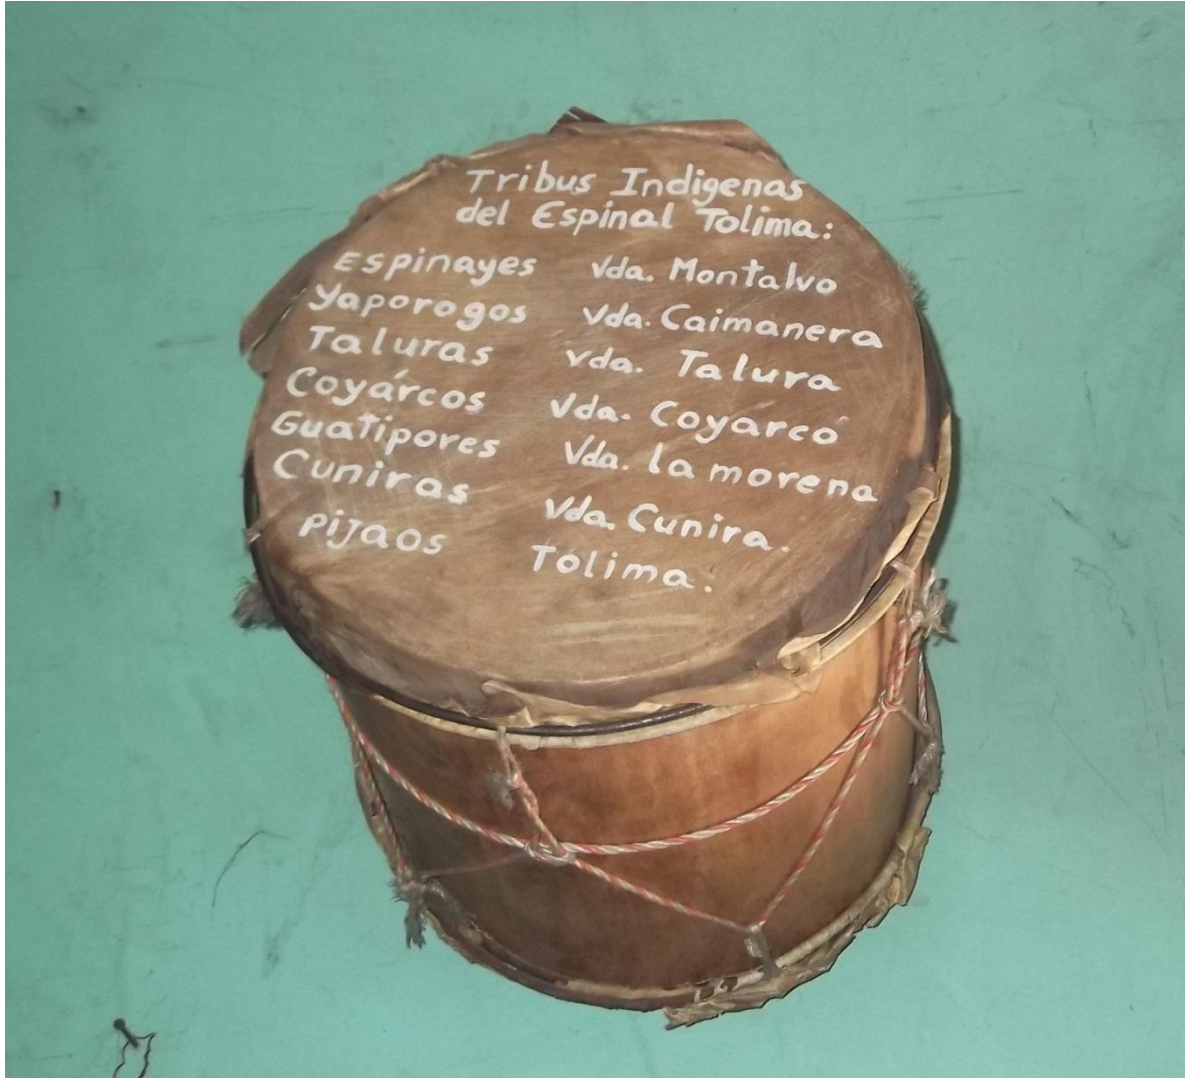 Tribus Indigenas
del Espinal Tolima:
Espinayes Vda. Montalvo
Yaporogos Vda. Caimanera
Taluras Vda. Talura
Coyárcos Vda. Coyarcó
Guatipores Vda. la morena
Cuniras Vda. Cunira.
Pijaos Tolima.